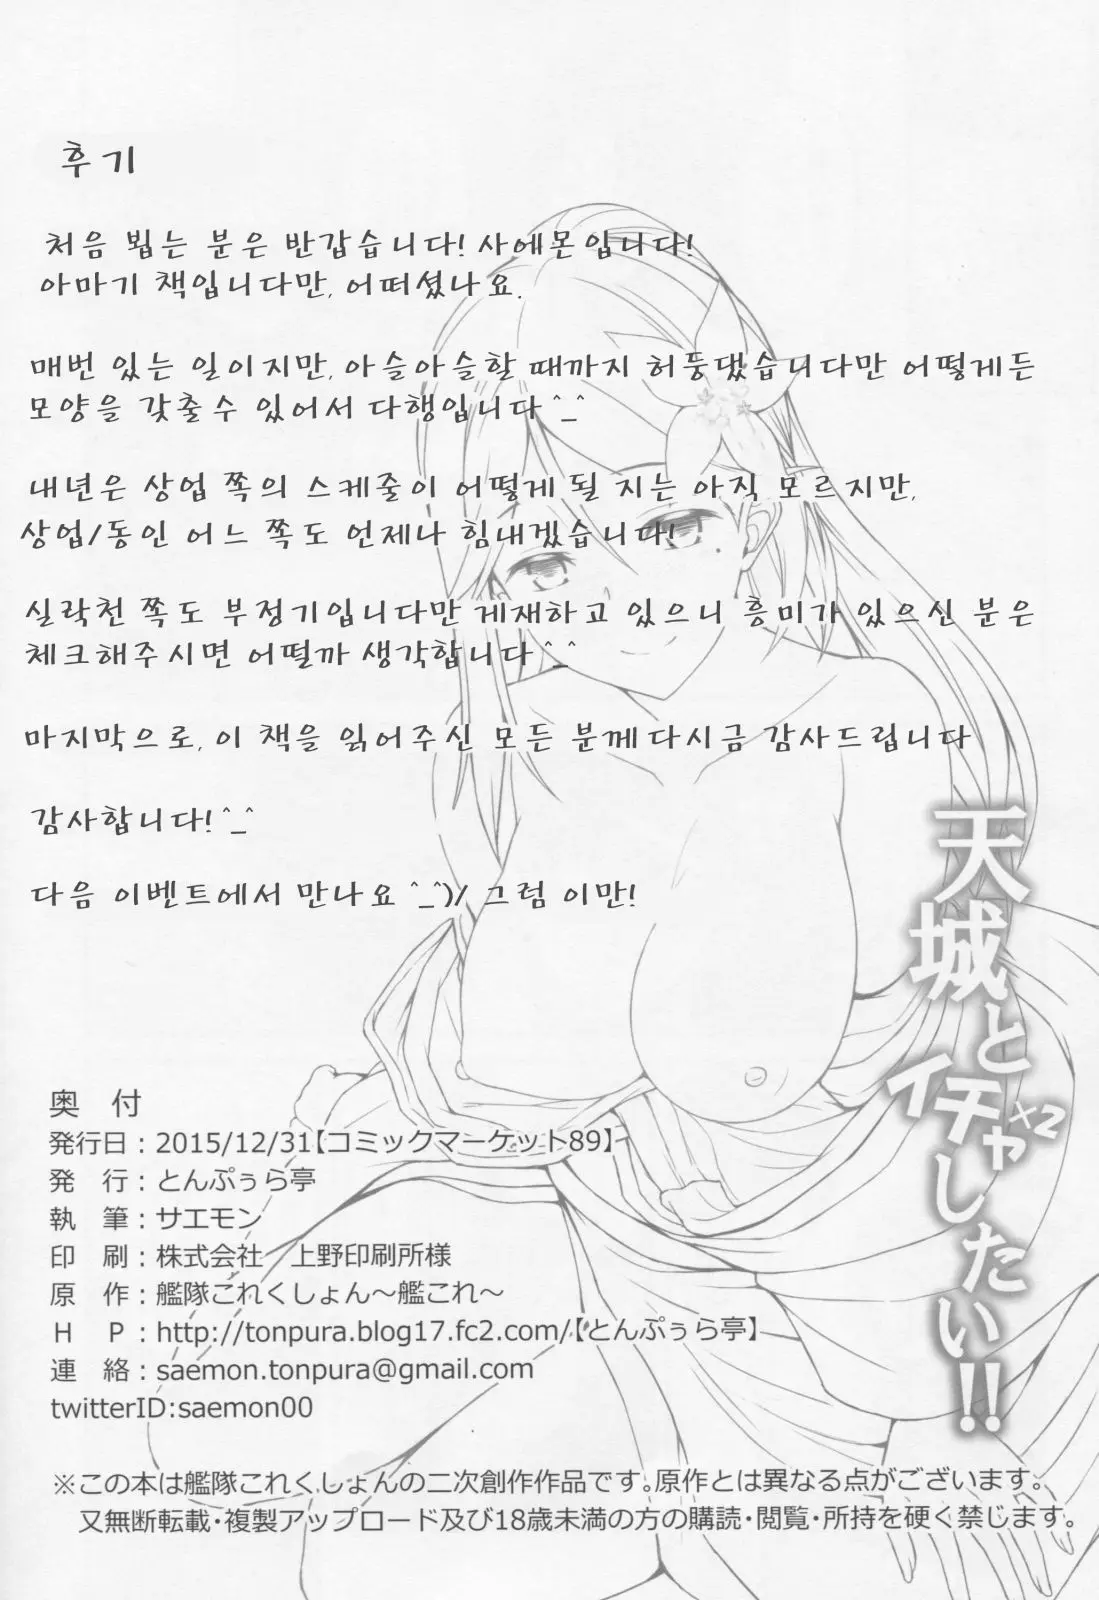 후기
처음 뵙는 분은 반갑습니다! 사에몬입니다!
아마기 책입니다만, 어떠셨나요.
매번 있는 일이지만, 아슬아슬할 때까지 허둥댔습니다만 어떻게든
모양을 갖출수 있어서 다행입니다^_^
내년은 상업 쪽의 스케줄이 어떻게 될 지는 아직 모르지만,
상업/동인 어느 쪽도 언제나 힘내겠습니다!
실락천 쪽도 부정기입니다만 게재하고 있으니 흥미가 있으신 분은
체크해주시면 어떨까 생각합니다^_^
마지막으로, 이 책을 읽어주신 모든 분께 다시금 감사드립니다
감사합니다!^_^
다음 이벤트에서 만나요^_^)/ 그럼 이만!
天城とイチャ×2したい!!
奥 付
発行日：2015/12/31【コミックマーケット89】
発 行：とんぷぅら亭
執 筆：サエモン
印 刷：株式会社 上野印刷所様
原 作：艦隊これくしょん～艦これ～
H P：http://tonpura.blog17.fc2.com/【とんぷぅら亭】
連 絡：saemon.tonpura@gmail.com
twitterID:saemon00
※この本は艦隊これくしょんの二次創作作品です。原作とは異なる点がございます。
又無断転載・複製アップロード及び18歳未満の方の購読・閲覧・所持を硬く禁じます。